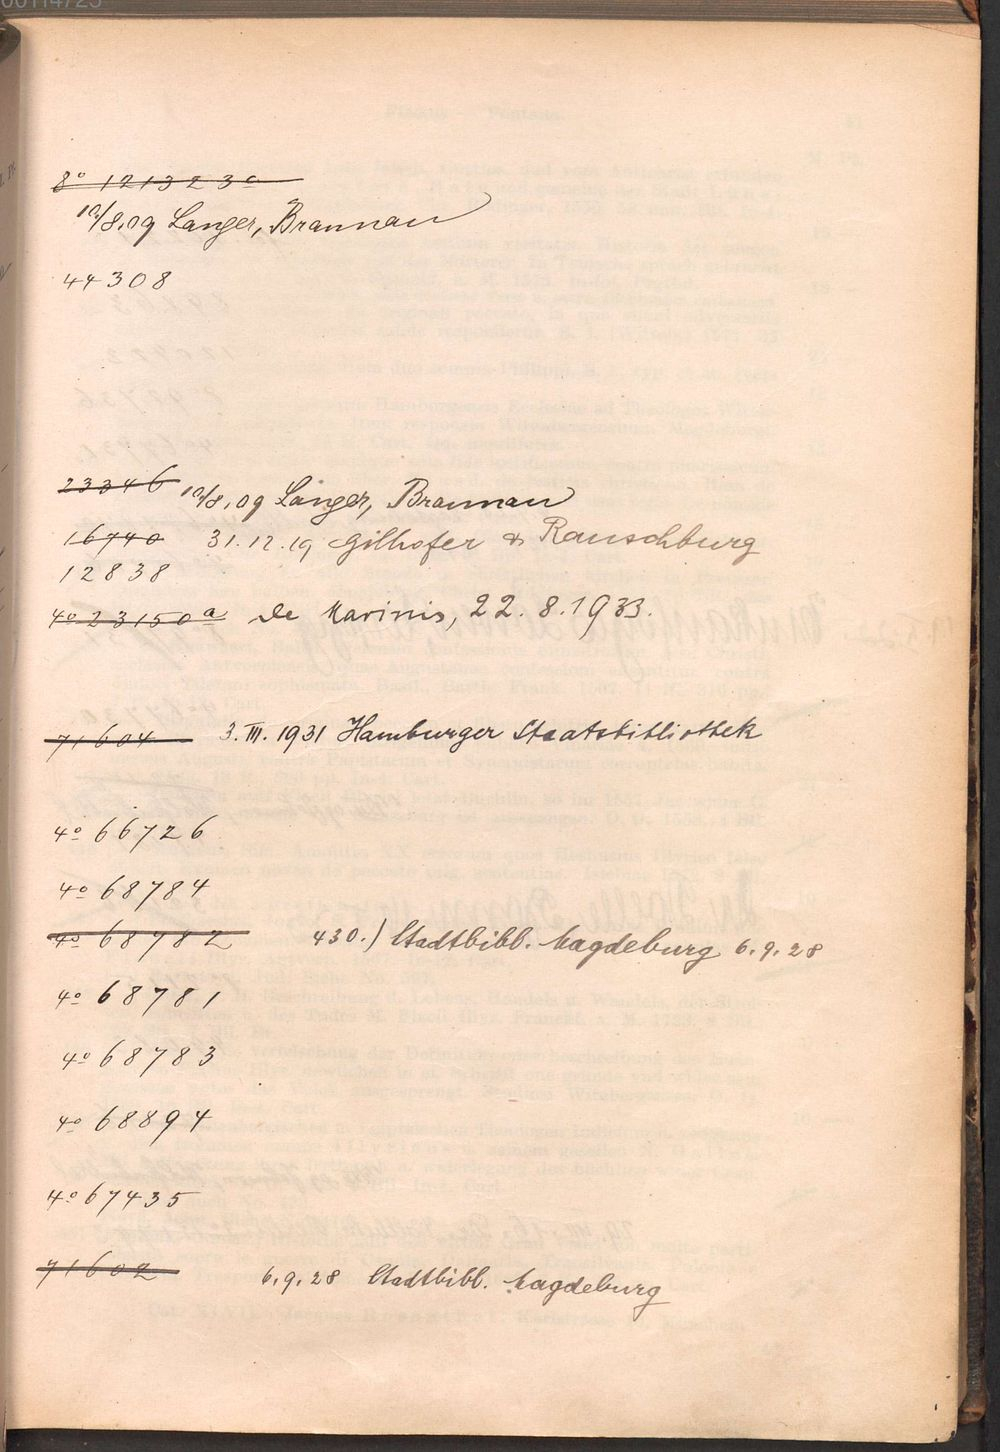 00114725
8º 121323ª
10/8.09 Langer, Braunau
44308
23346 10/8.09 Langer, Braunau
16740 31.12.19 Gilhofer & Ranschburg
12838
4º 23150ª De Marinis, 22.8.1933.
71604 3.III.1931 Hamburger Staatsbibliothek
4º 66726
4º 68784
4º 68782 430.) Stadtbibl. Magdeburg 6.9.28
4º 68781
4º 68783
4º 68894
4º 67435
71602 6.9.28 Stadtbibl. Magdeburg